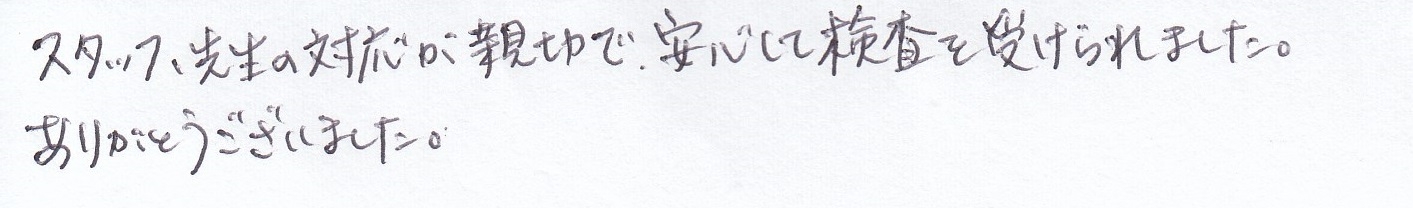 スタッフ、先生の対応が親切で、安心して検査を受けられました。
ありがとうございました。